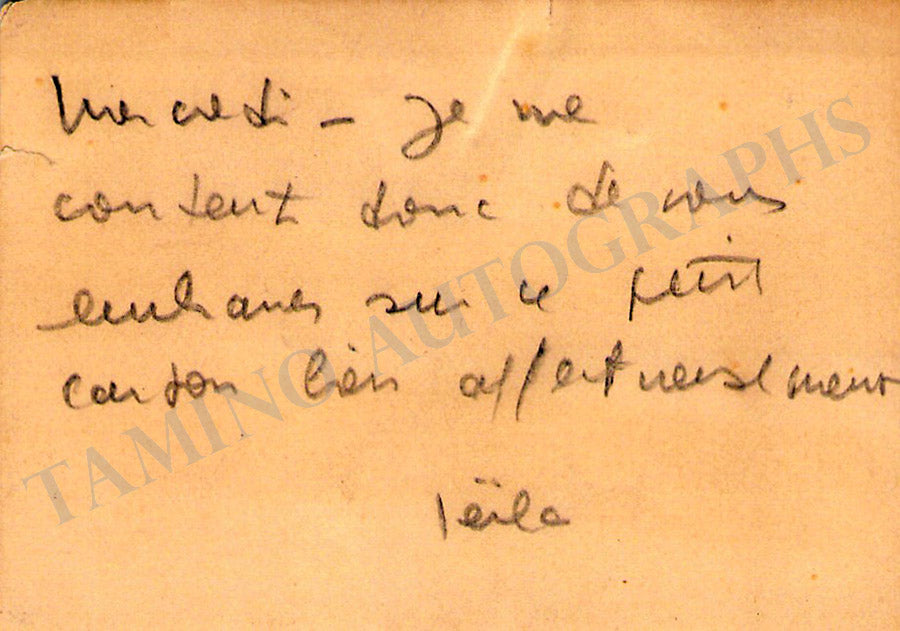 Mercredi – Je me
content donc de vous
embrasser sur ce petit
carton bien affectueusement
Leïla
TAMINO AUTOGRAPHS